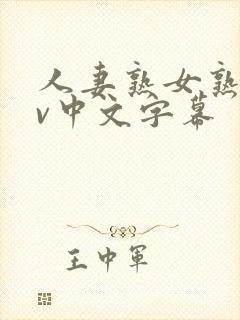 人妻熟女熟
v中文字幕
王中军